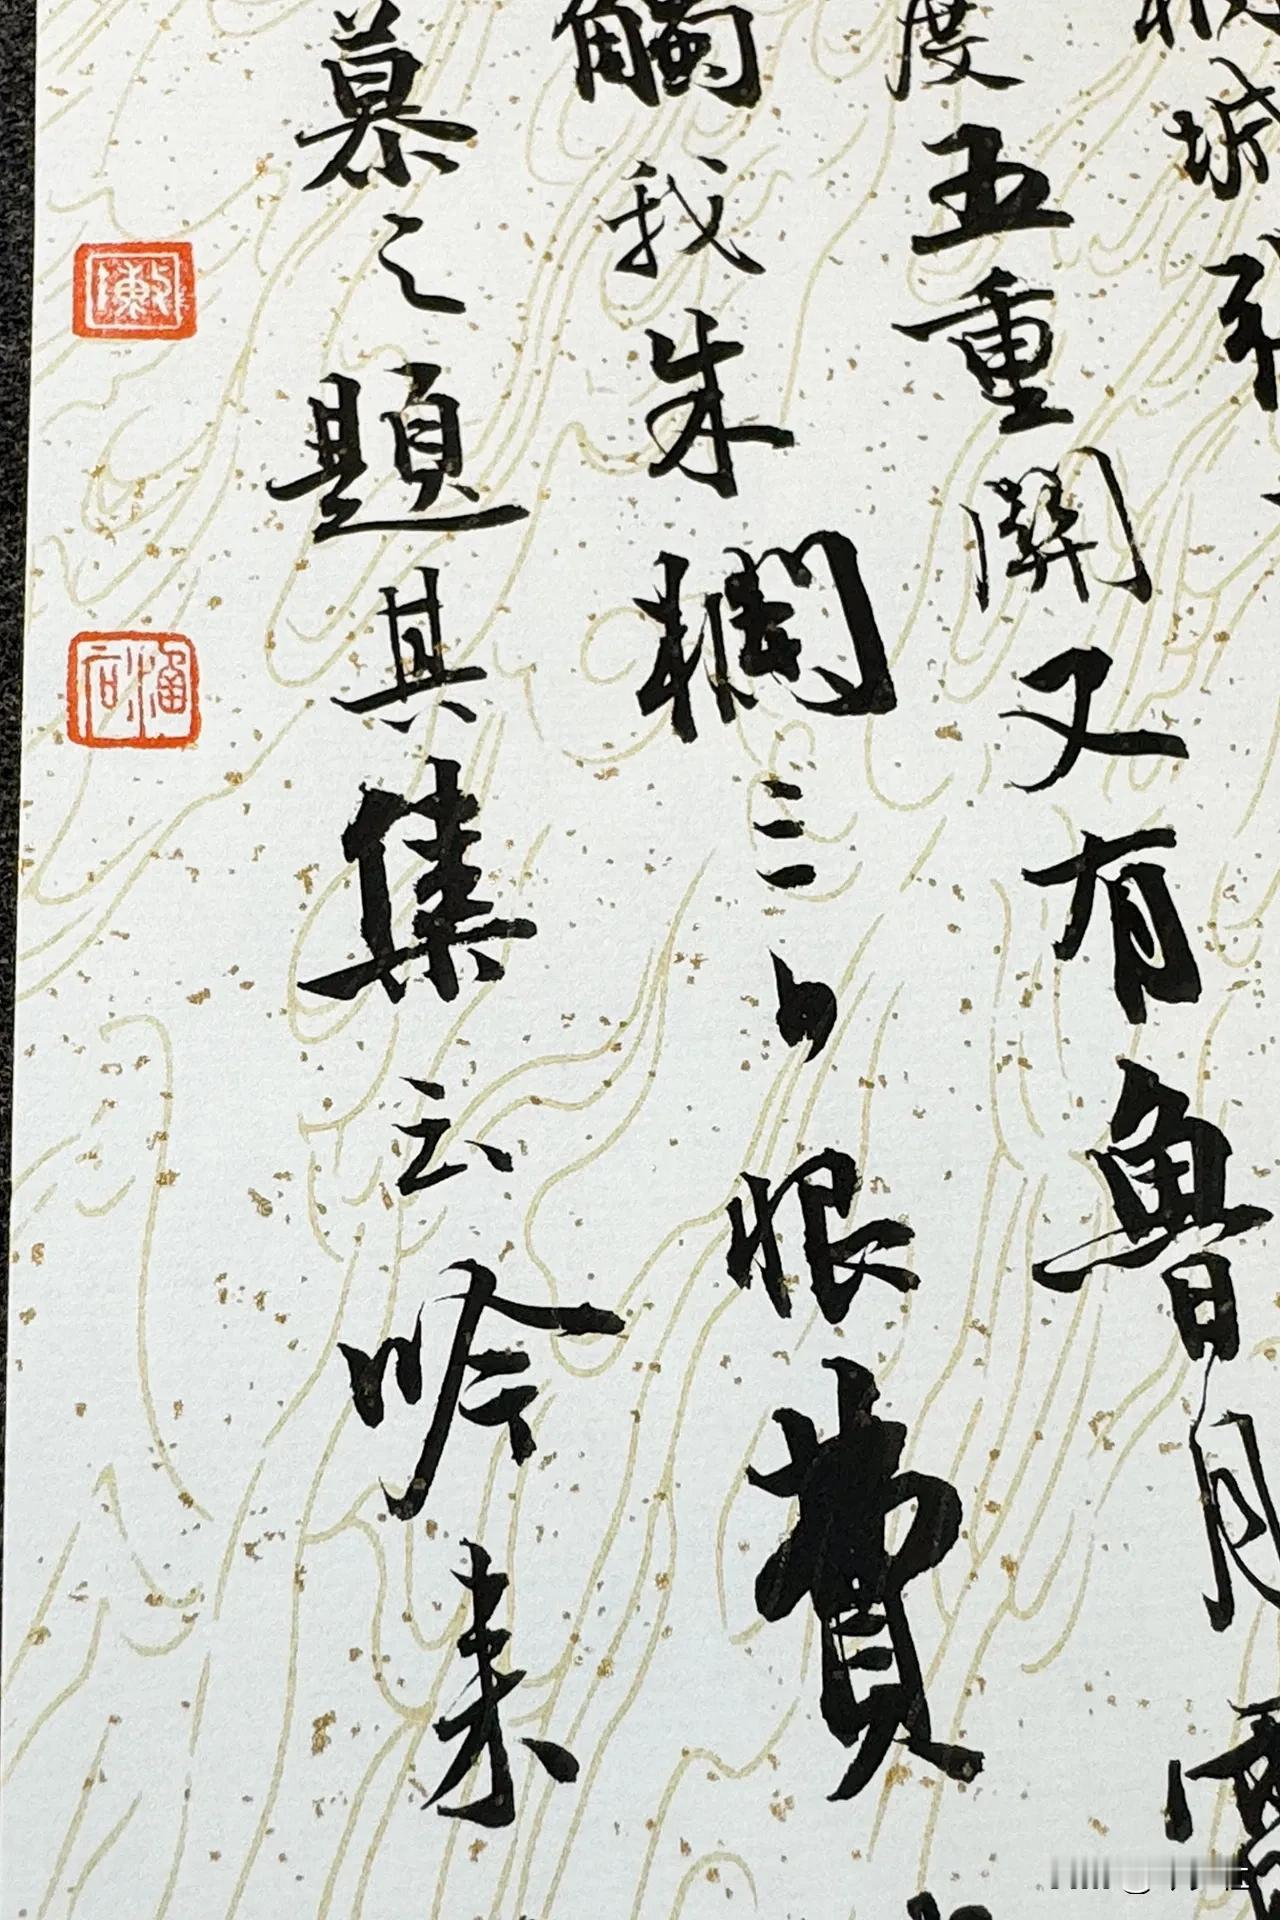 城
度五重關又有魯月
觸我朱欄三〻恨費
慕之題其集云吟來